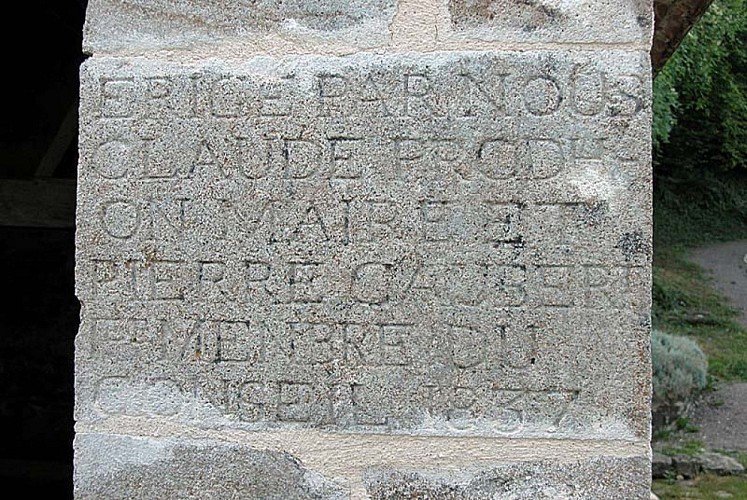 ERIGE PAR NOUS
CLAUDE PRODH-
ON MAIRE ET
PIERRE GAUBERT
Fˢ MENBRE DU
CONSEIL 1837